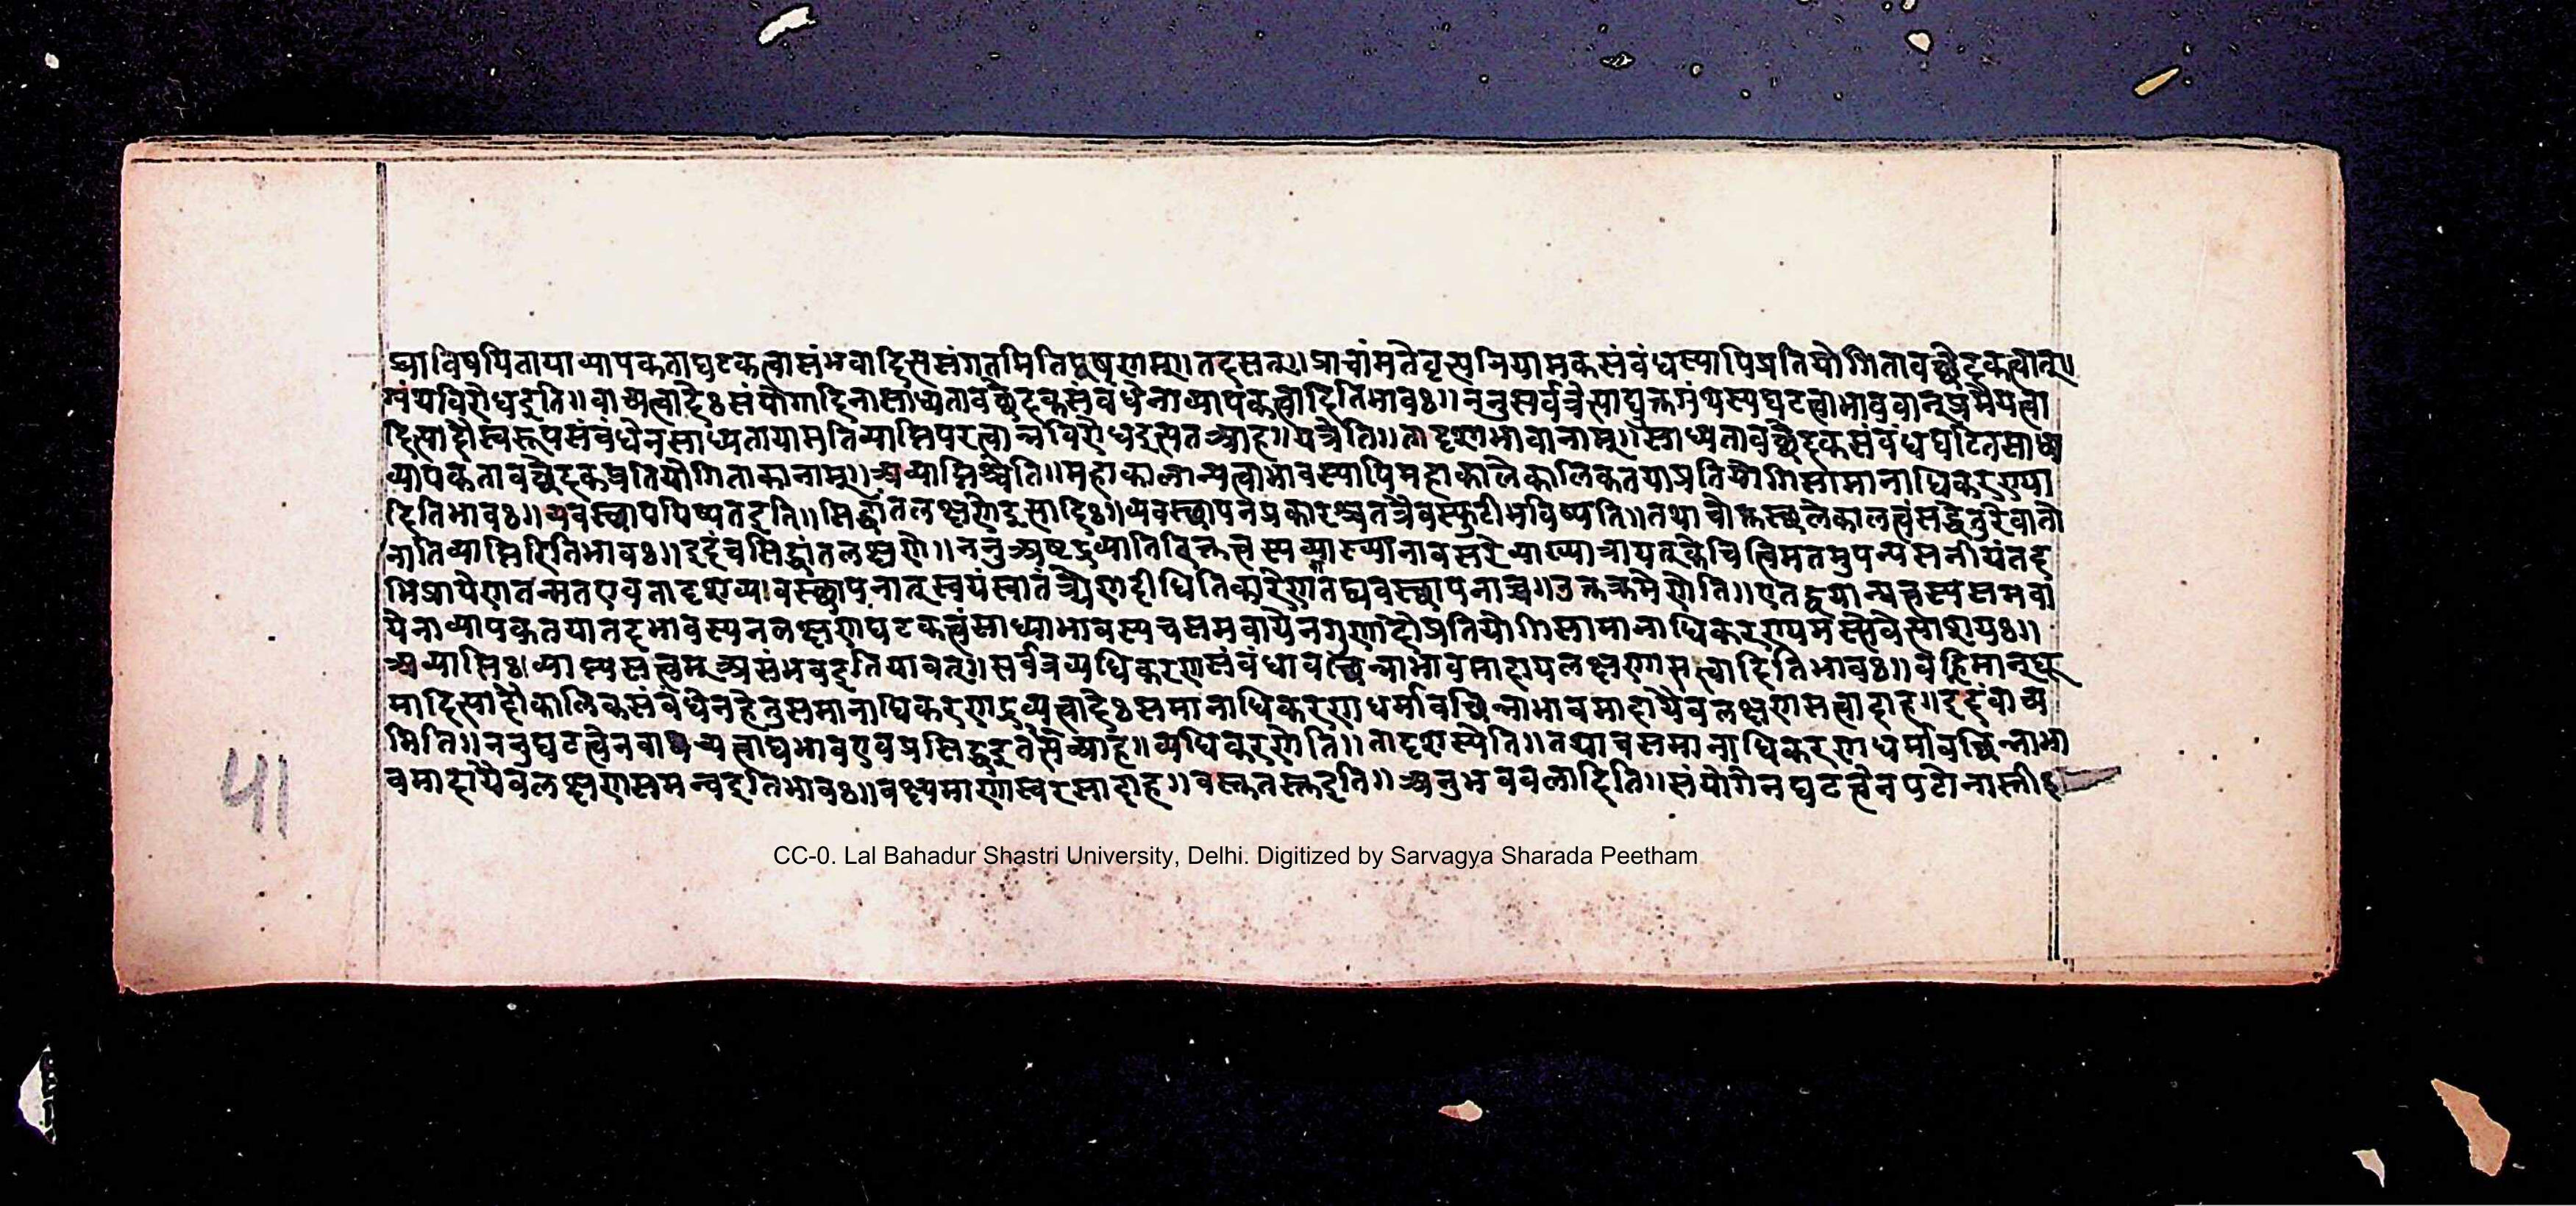 ज्ञाविषयितायाव्यापकताघटकत्वासंभवादित्यसंगतमितिदूषणम्॥तदसत्॥प्राचांमतेवृत्त्यनियामकसंबंधस्यापिप्रतियोगितावच्छेदकत्वात्॥
ग्रंथविरोधइति॥वाच्यत्वादेःसंयोगादिनासाध्यतावच्छेदकसंबंधेनाव्यापकत्वादितिभावः॥ननुसर्वत्रैत्याद्युक्तग्रंथस्यघटत्वाभाववान्प्रमेयत्वा
दित्यादौस्वरूपसंबंधेनसाध्यतायामतिव्याप्तिपरत्वान्नविरोधइत्यतआह॥यत्रेति॥तादृशाभावानाम्॥साध्यतावच्छेदकसंबंधघटितसाध्य
व्यापकतावच्छेदकप्रतियोगिताकानाम्॥अव्याप्तिश्चेति॥महाकालान्यत्वाभावस्यापिमहाकालेकालिकतयाप्रतियोगिसामानाधिकरण्या
दितिभावः॥व्यवस्थापयिष्यतइति॥सिद्धांतलक्षणेइत्यादिः॥व्यवस्थापनप्रकारश्चतत्रैवस्फुटीभविष्यति॥तथाचोक्तस्थलेकालत्वंसद्धेतुरेवातो
नातिव्याप्तिरितिभावः॥इदंचसिद्धांतलक्षणे॥ननुअष्टद्रव्यातिरिक्तत्वस्यव्याख्यानावसरेव्याख्यात्रायत्केचित्त्विमतमुपन्यसनीयंतद
भिप्रायेणतन्मतएवतादृशव्यावस्थापनात्स्वयंस्वातंत्र्येणदीधितिकारेणतद्व्यवस्थापनाच्च॥उक्तक्रमेणेति॥एतद्घयान्यत्वस्यसमवा
येनाव्यापकतयातदभावस्यनलक्षणघटकत्वंसाध्याभावस्यचसमवायेनगुणादौप्रतियोगिसामानाधिकरण्यमस्त्येवेत्याशयः॥
अव्याप्तिः।व्याप्यसत्त्वम्असंभवइतियावत्॥सर्वत्रव्यधिकरणसंबंधावच्छिन्नाभावमादायलक्षणासत्त्वादितिभावः॥वह्निमान्धू
मादित्यादौकालिकसंबंधेनहेतुसमानाधिकरणद्रव्यत्वादेःसमानाधिकरणधर्मावच्छिन्नाभावमादायैवलक्षणसत्वादाह॥इदंवाच्य
मिति॥ननुघटत्वेनवाच्यत्वाद्यभावएवप्रसिद्धइत्यतआह॥व्यधिकरणेति॥तादृशस्येति॥तथाचसमानाधिकरणधर्मावच्छिन्नाभा
वमादायैवलक्षणसमन्वइतिभावः॥वक्ष्यमाणास्वरसादाह॥वस्तुतस्त्वइति॥अनुभवबलादिति॥संयोगेनघटत्वेनपटोनास्तीइ
५।
CC-0. Lal Bahadur Shastri University, Delhi. Digitized by Sarvagya Sharada Peetham